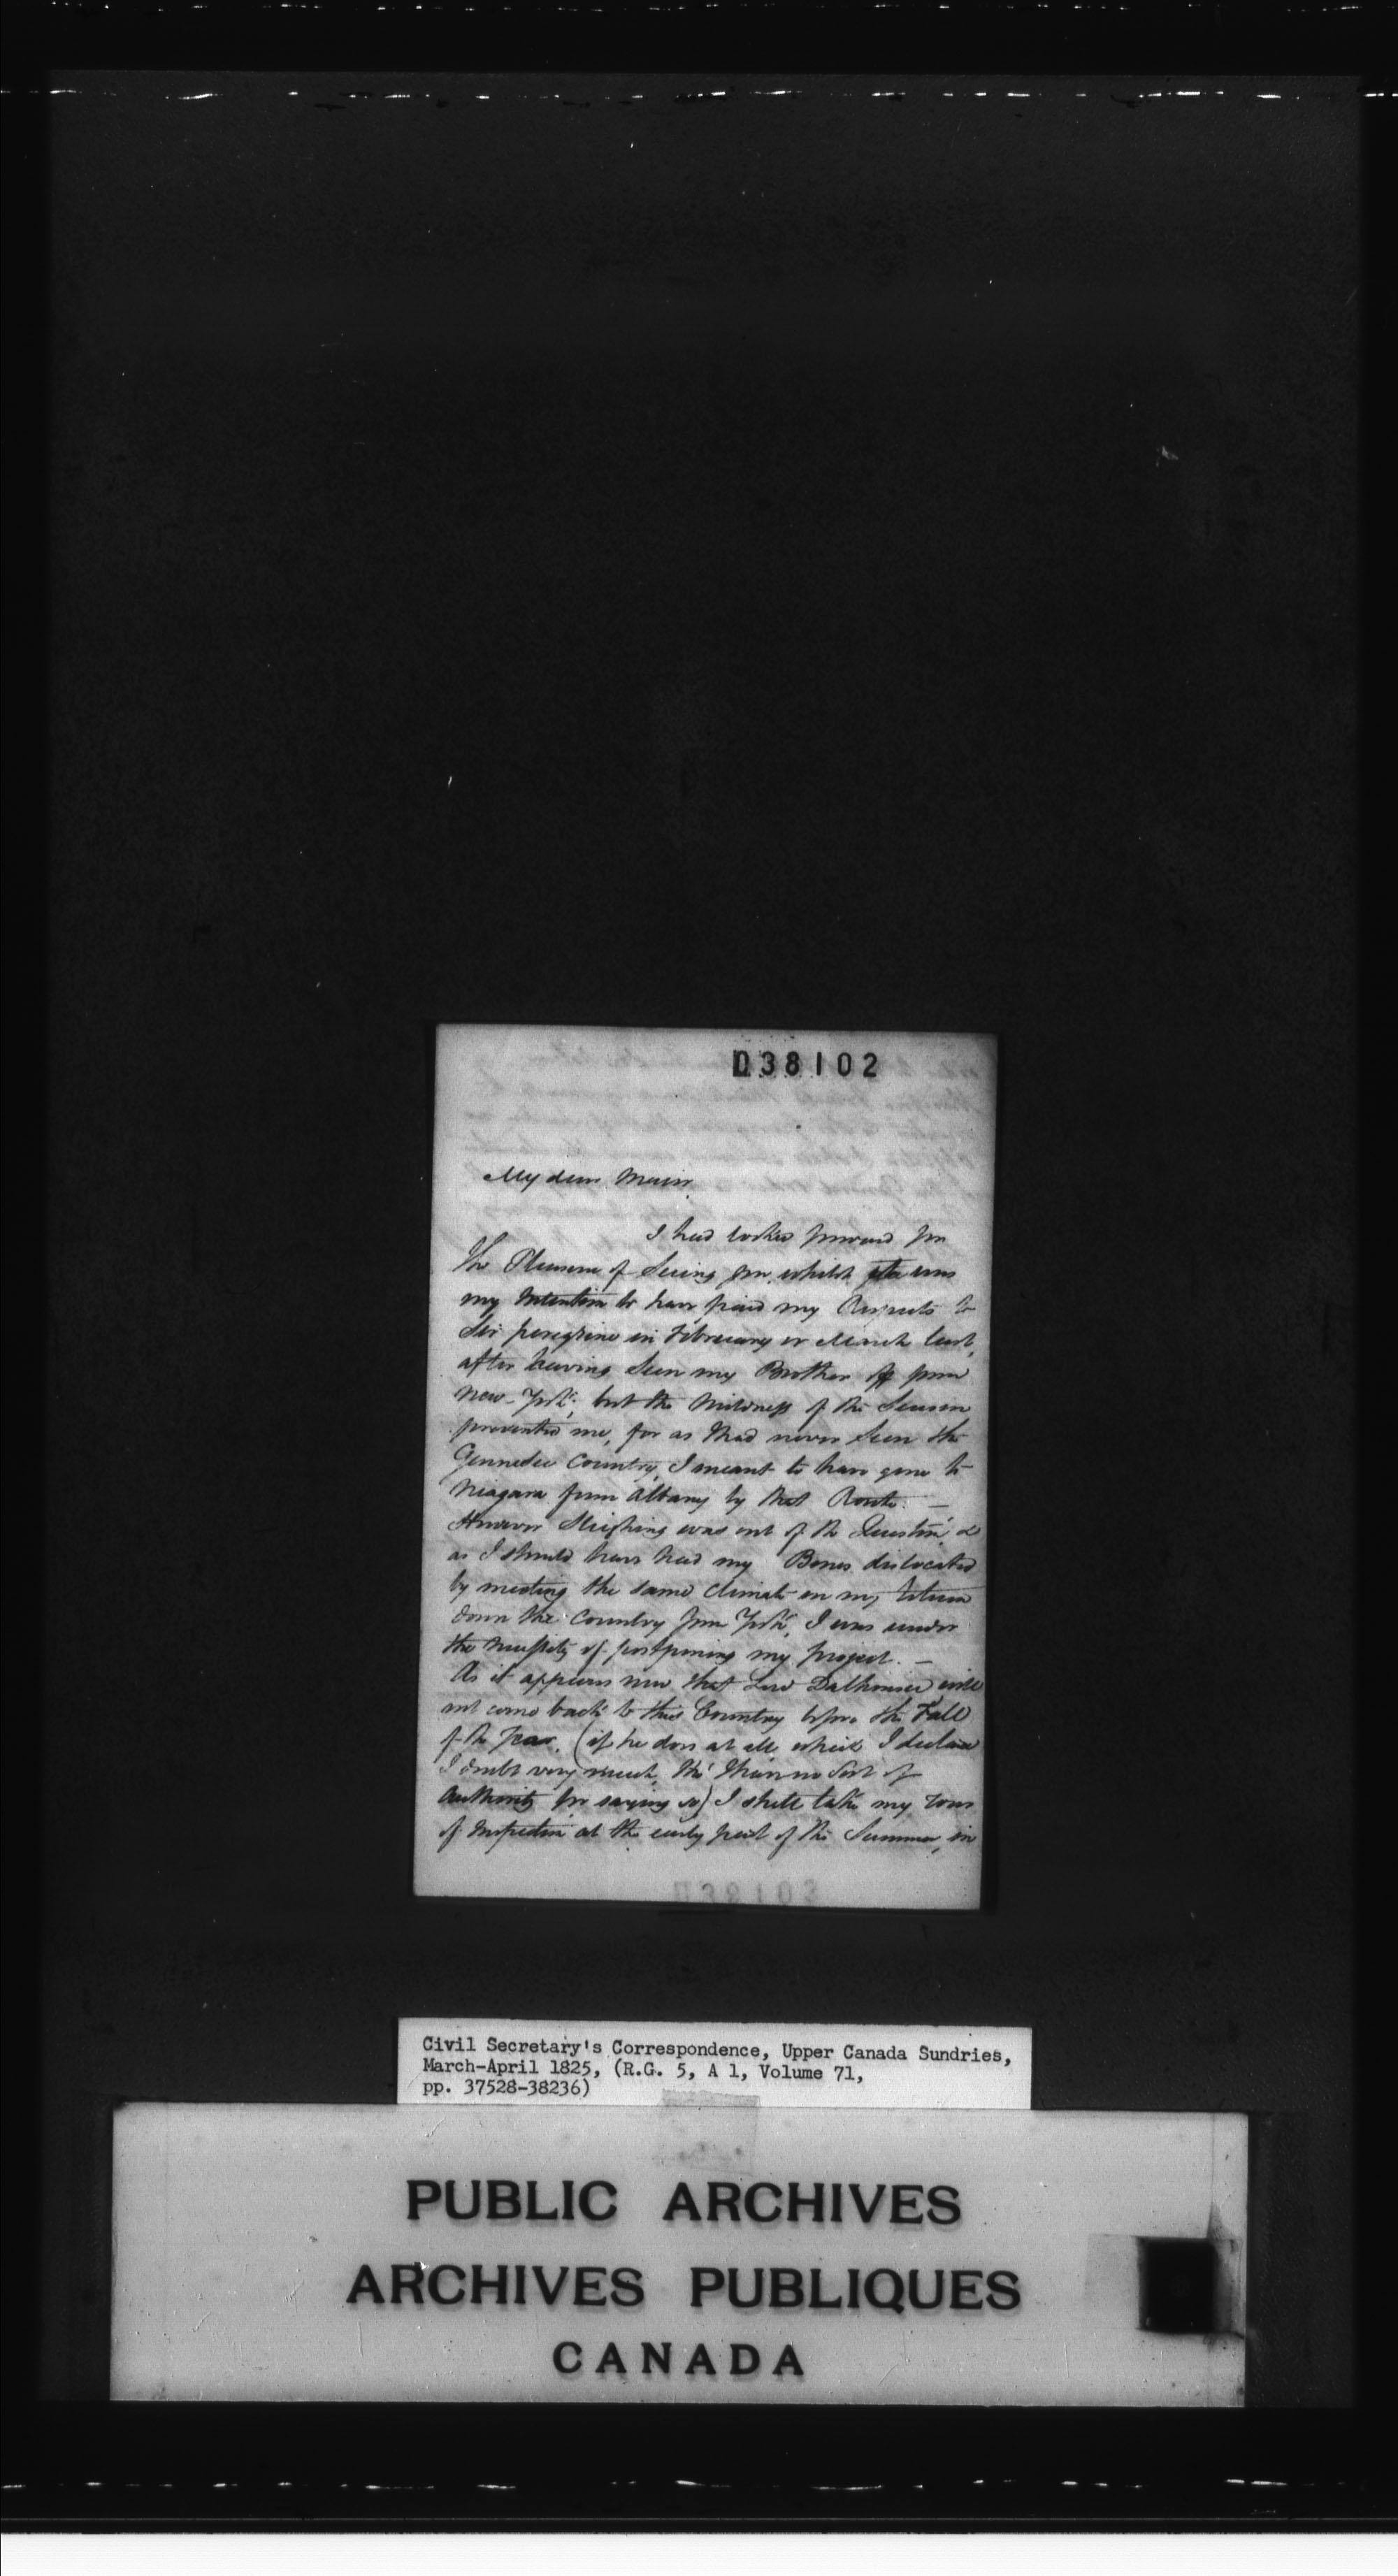 038102
My dear Major
I had looked forward for
the Pleasure of Seeing you, whilst it was
my Intention to have paid my Respects to
Sir peregrine in February or March last,
after having Seen my Brother off from
New-York; but the Mildness of the Season
prevented me, for as I had never Seen the
Gennesee Country, I meant to have gone to
Niagara from Albany by that Route. —
However Sleighing was out of the Question, &
as I should have had my Bones dislocated
by meeting the same climate on my return
down the Country from York, I was under
the Necessity of postponing my project. —
As it appears now that Lord Dalhousie will
not come back to this Country before the Fall
of the Year, (if he does at all which I declare
I doubt very much, tho' I have no Sort of
Authority for saying so) I shall take my Tour
of Inspection at the early part of the Summer, in
038103
Civil Secretary's Correspondence, Upper Canada Sundries,
March-April 1825, (R.G. 5, A 1, Volume 71,
pp. 37528-38236)
PUBLIC ARCHIVES
ARCHIVES PUBLIQUES
CANADA